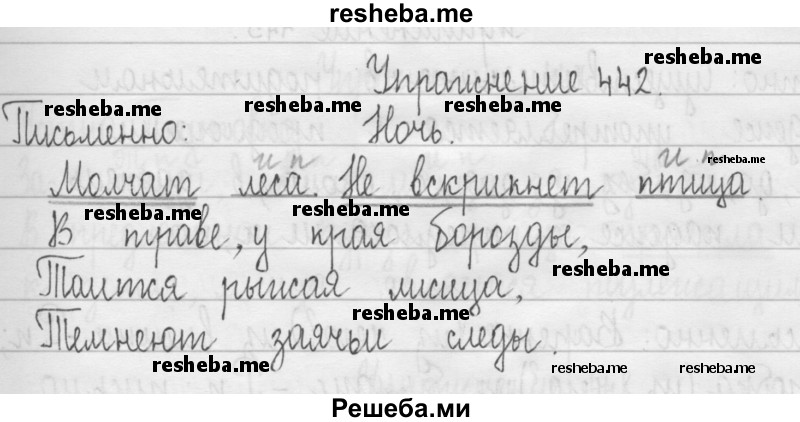 resheba.me
Упражнение 442
resheba.me
resheba.me resheba.me resheba.me
Письменно: Ночь.
и п и. п.
resheba.me
Молчат леса. Не вскрикнет птица.
resheba.me resheba.me
В траве, у края борозды,
resheba.me
Таится рыжая лисица,
resheba.me
Темнеют заячьи следы.
resheba.me resheba.me resheba.me
Решеба.ми